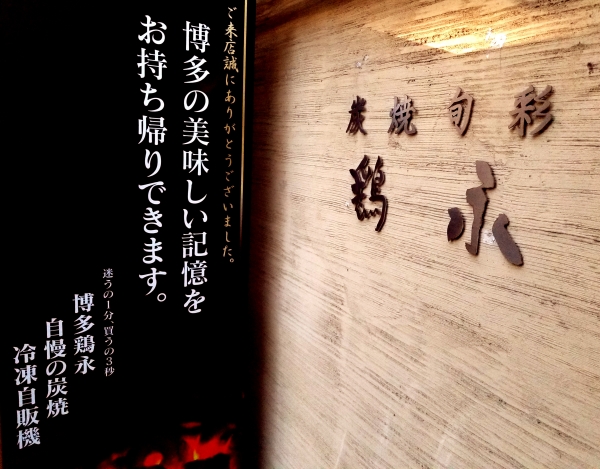 ご来店誠にありがとうございました。
博多の美味しい記憶を
お持ち帰りできます。
迷うの1分、買うの3秒
博多鶏永
自慢の炭焼
冷凍自販機
炭焼旬彩
鶏永